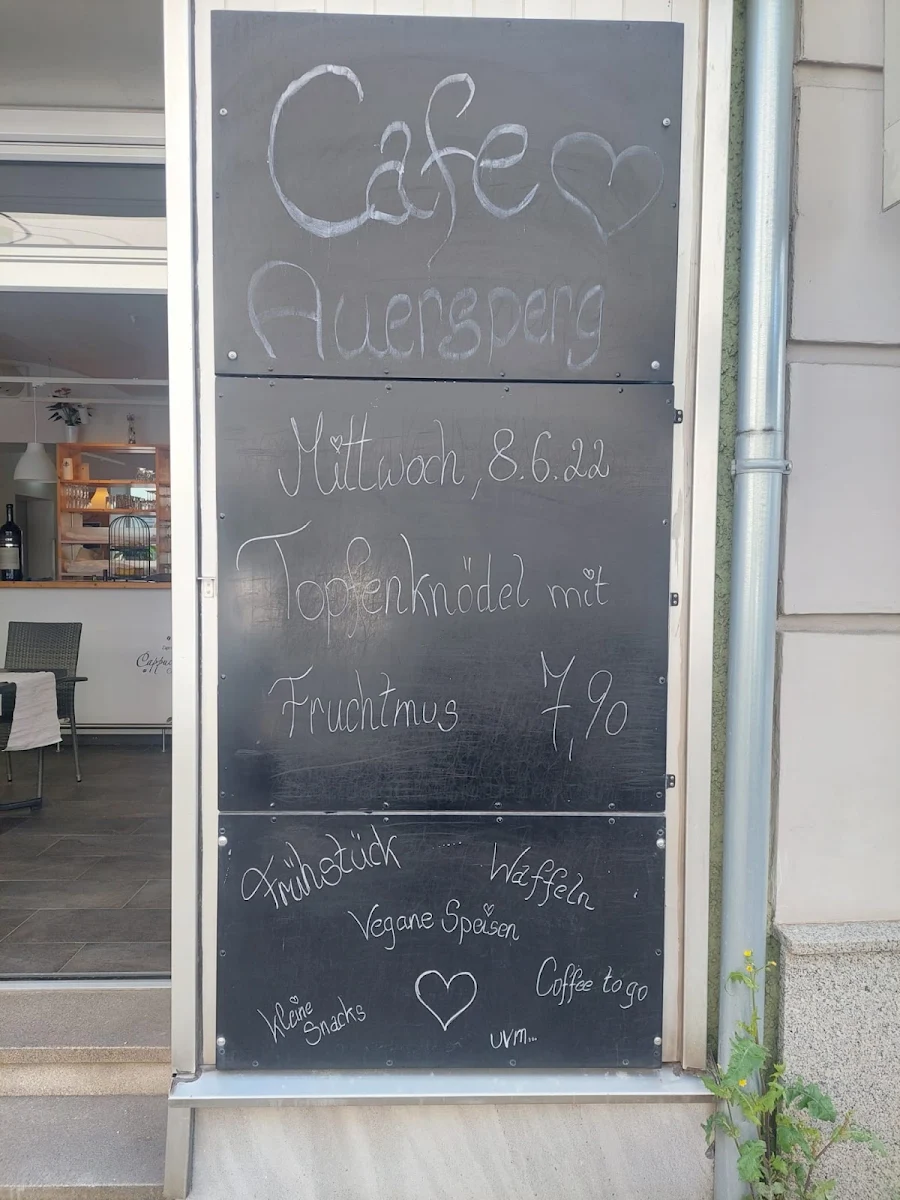 Cafe
Auersperg
Mittwoch, 8.6.22
Topfenknödel mit
Fruchtmus 7,90
Frühstück
Waffeln
Vegane Speisen
Coffee to go
Kleine
Snacks
uvm...